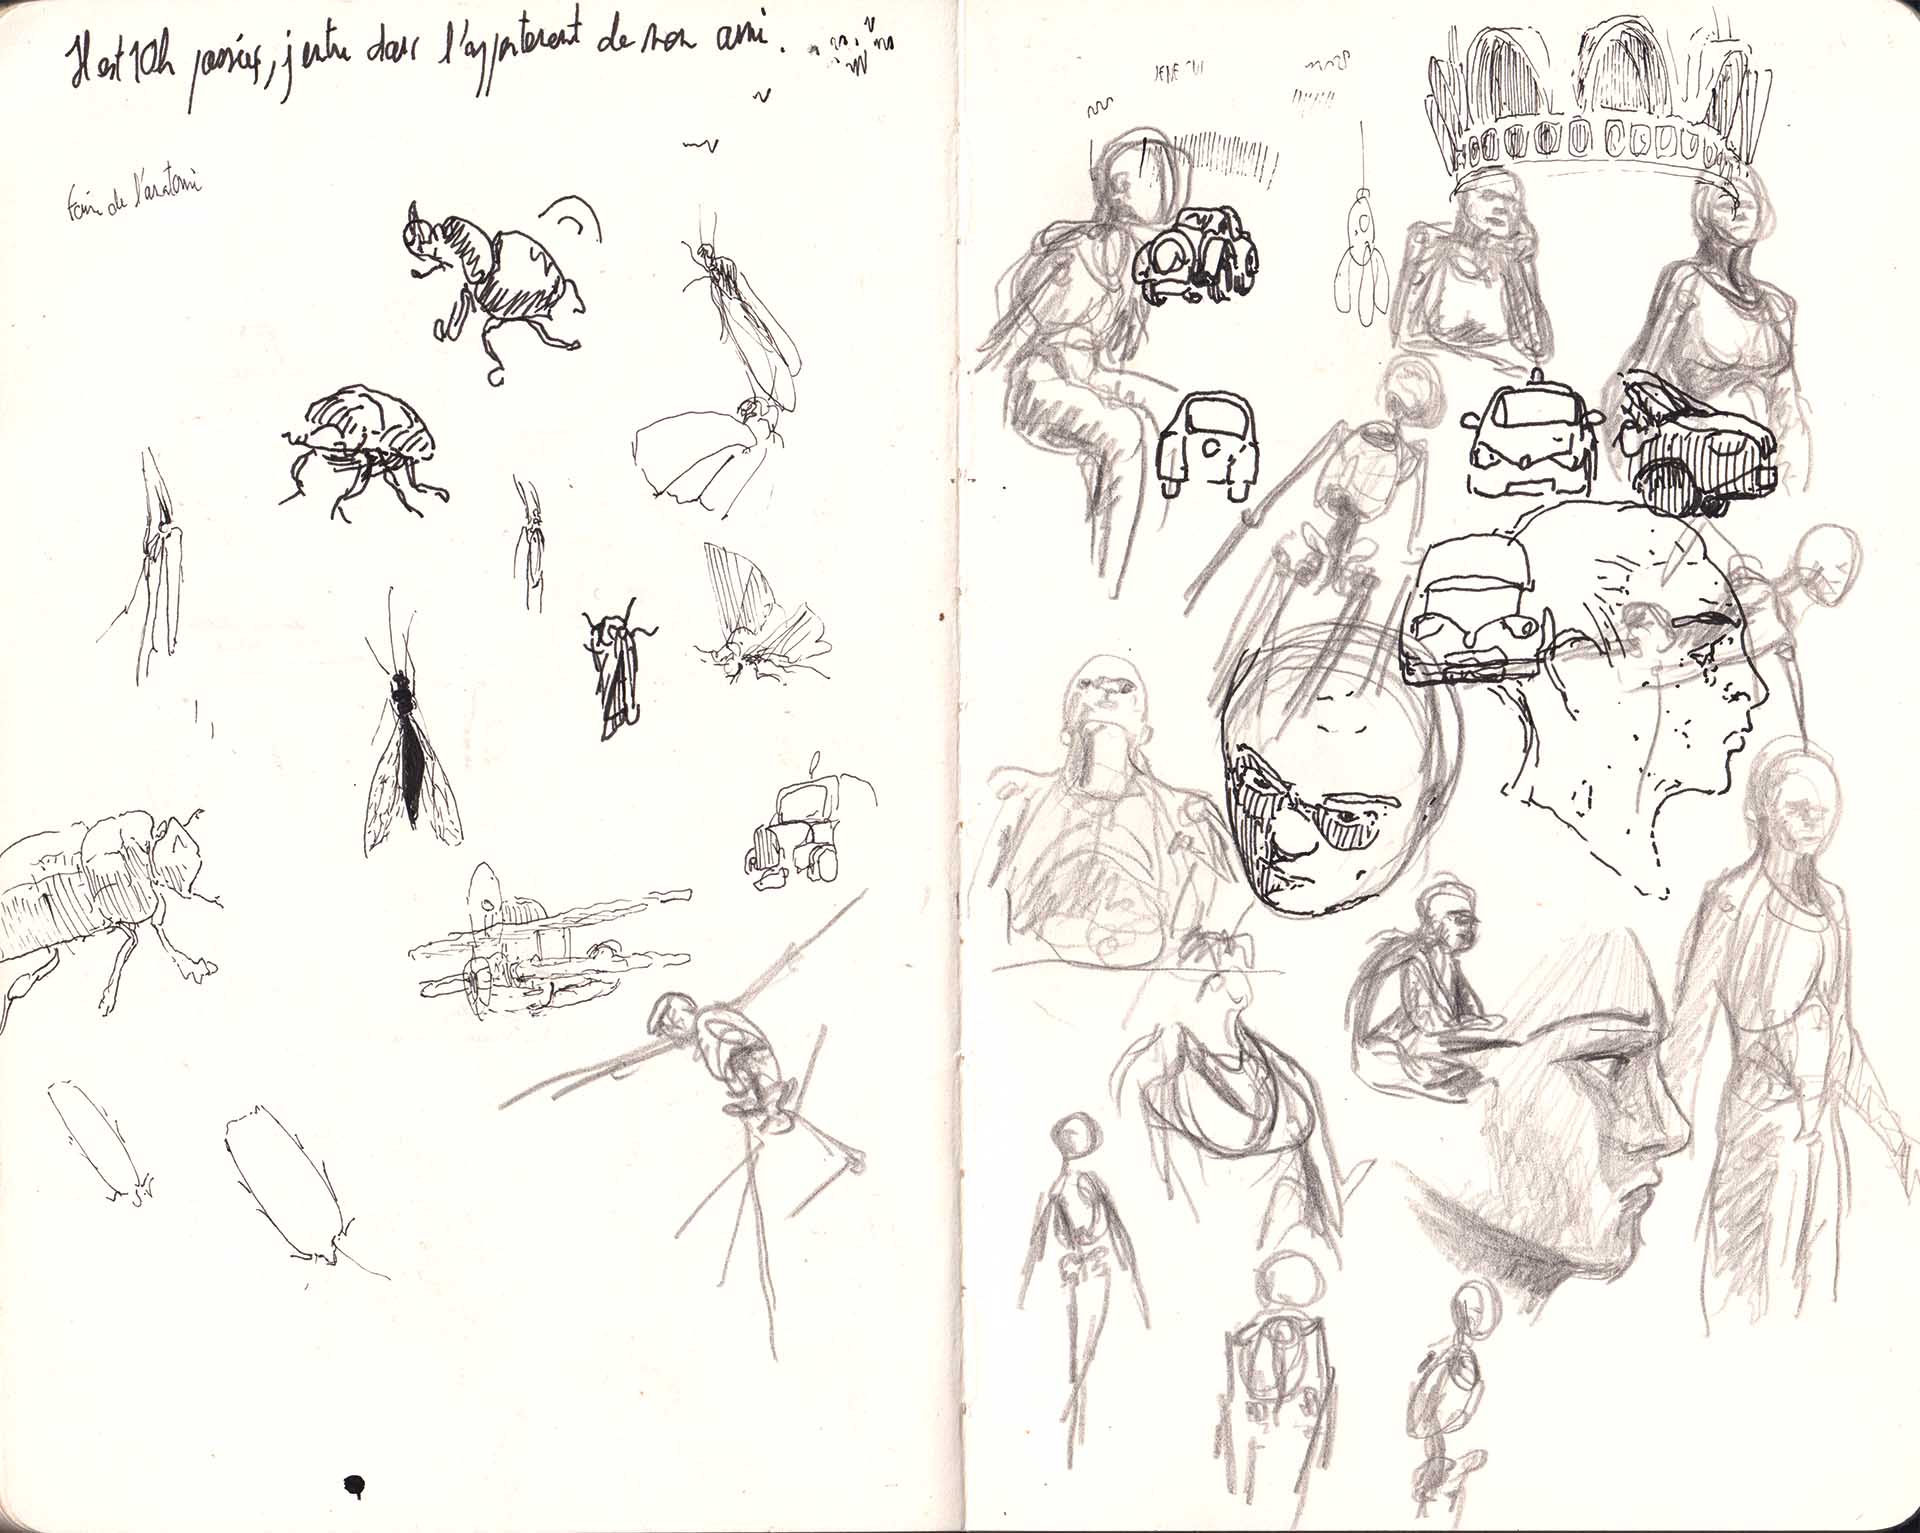 Il est 10h passées, j'entre dans l'appartement de mon ami.
Faire de l'anatomi